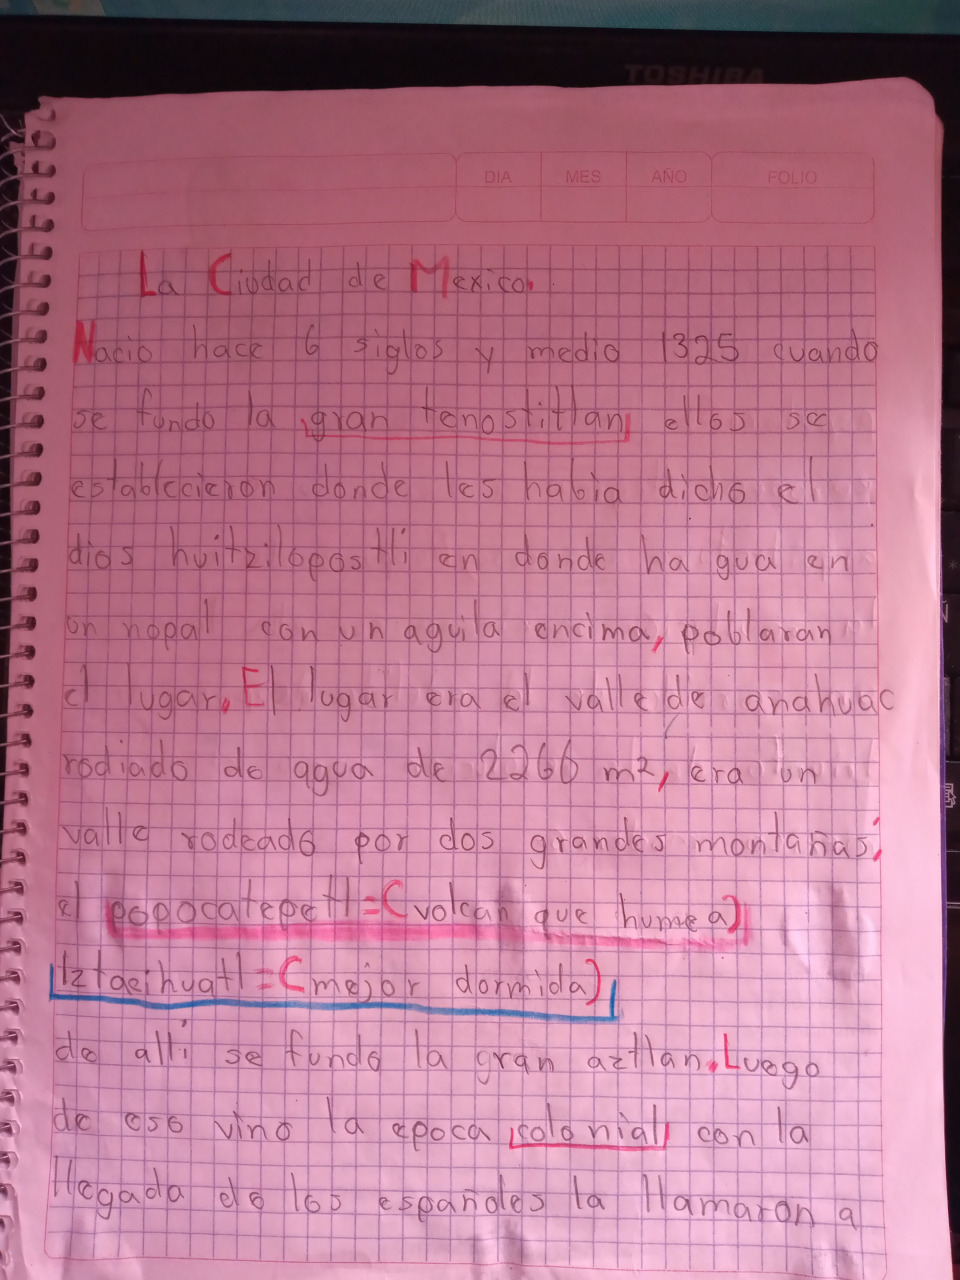 TOSHIBA
DIA MES AÑO FOLIO
La Ciudad de Mexico.
Nacio hace 6 siglos y medio 1325 cuando
se fundo la gran tenostitlan ellos se
establecieron donde les habia dicho el
dios huitzilopostli en donde ha gua en
un nopal con un aguila encima, poblaran
el lugar. El lugar era el valle de anahuac
rodiado de agua de 2266 m², era un
valle rodeado por dos grandes montañas,
el popocatepetl=(volcan que humea)
Iztacihuatl=(mejor dormida)
de alli se fundo la gran aztlan. Luego
de eso vino la epoca colonial con la
llegada de los españoles la llamaron a